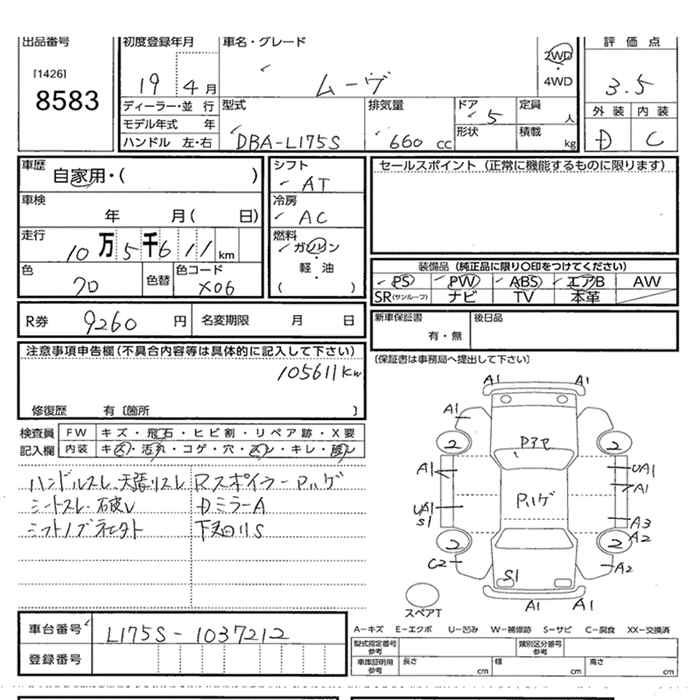 出品番号
[1426]
8583
初度登録年月
19 4月
車名・グレード
ムーヴ
2WD
・
4WD
評価点
3.5
外装 内装
D C
ディーラー・並行
モデル年式 年
ハンドル 左・右
型式
DBA-L175S
排気量
660 cc
ドア 5
形状
定員 人
積載 kg
車歴
自家用・( )
車検
年 月( 日)
走行
10万5千611km
色
クロ
色替
色コード
X06
シフト
AT
冷房
AC
燃料
ガソリン
・
軽油
( )
セールスポイント(正常に機能するものに限ります)
装備品(純正品に限り〇印をつけてください)
PS PW ABS エアB AW
SR(サンルーフ) ナビ TV 本革
R券 9260円 名変期限 月 日
新車保証書
有・無
後日品
(保証書は事務局へ提出して下さい)
注意事項申告欄(不具合内容等は具体的に記入して下さい)
105611km
修復歴 有〔箇所 〕
検査員
記入欄
FW キズ・飛石・ヒビ割・リペア跡・X要
内装 キズ・汚れ・コゲ・穴・スレ・キレ・破レ
ハンドルスレ・天張リスレ
シートスレ・右破レ
Rスポイラー Pハゲ
DミラーA
下廻りS
A1 A1
A1 A1
2 Dアセ 2
A1 UA1
Pハゲ A1
UA1
S1 A3
2 2 A2
C2 A2
S1
A1 A1
スペアT
A-キズ E-エクボ U-凹み W-補修跡 S-サビ C-腐食 XX-交換済
車台番号
L175S-1037212
登録番号
型式指定番号
参考
類別区分番号
参考
車庫証明用
参考
長さ cm 幅 cm 高さ cm